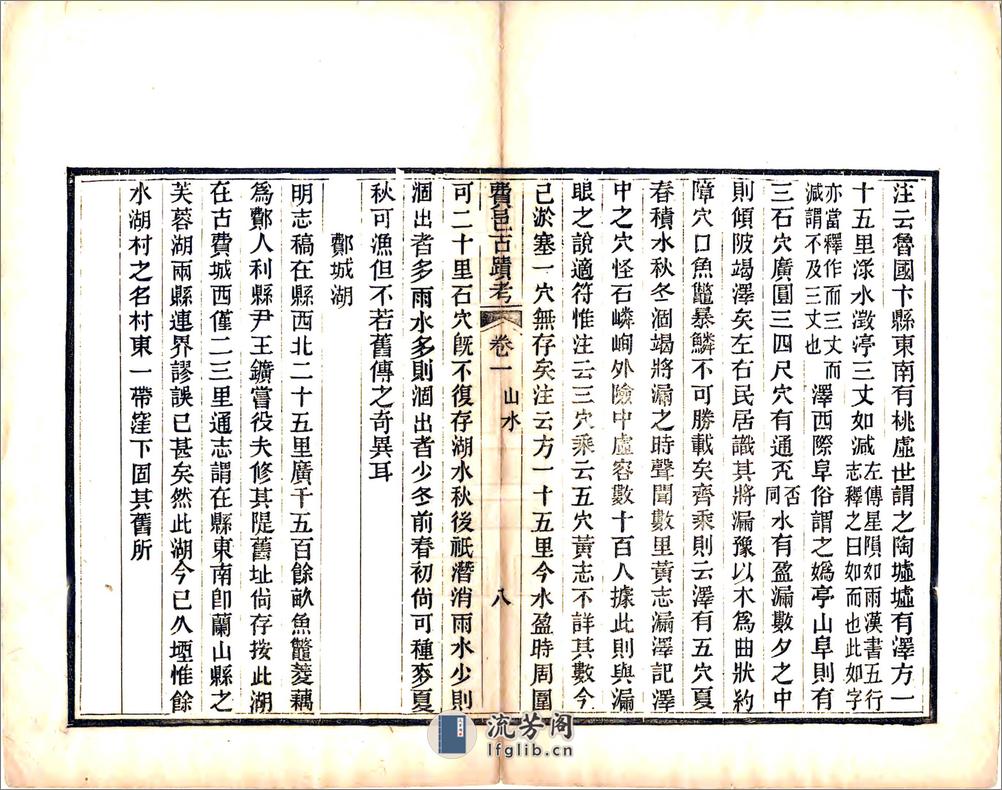 注云魯國卞縣東南有桃虛世謂之陶墟墟有澤方一
十五里淥水澂渟三丈如減左傳星隕如雨漢書五行志釋之曰如而也此如字
亦當釋作而三丈而減謂不及三丈也澤西際阜俗謂之嬀亭山阜則有
三石穴廣圓三四尺穴有通否同水有盈漏數夕之中
則傾陂竭澤矣左右民居識其將漏豫以木爲曲狀約
障穴口魚鼈暴鱗不可勝載矣齊乘則云澤有五穴夏
春積水秋冬涸竭將漏之時聲聞數里黃志漏澤記澤
中之穴怪石嶙峋外險中虛容數十百人據此則與漏
眼之說適符惟注云三穴乘云五穴黃志不詳其數今
已淤塞一穴無存矣注云方一十五里今水盈時周圍
費邑古蹟考 卷一 山水 八
可二十里石穴旣不復存湖水秋後祇潛消雨水少則
涸出者多雨水多則涸出者少冬前春初尙可種麥夏
秋可漁但不若舊傳之奇異耳
酇城湖
明志稿在縣西北二十五里廣千五百餘畝魚鼈菱藕
爲酇人利縣尹王鑛嘗役夫修其隄舊址尙存按此湖
在古費城西僅二三里通志謂在縣東南卽蘭山縣之
芙蓉湖兩縣連界謬誤已甚矣然此湖今已久堙惟餘
水湖村之名村東一帶窪下固其舊所
流芳阁
lfglib.cn